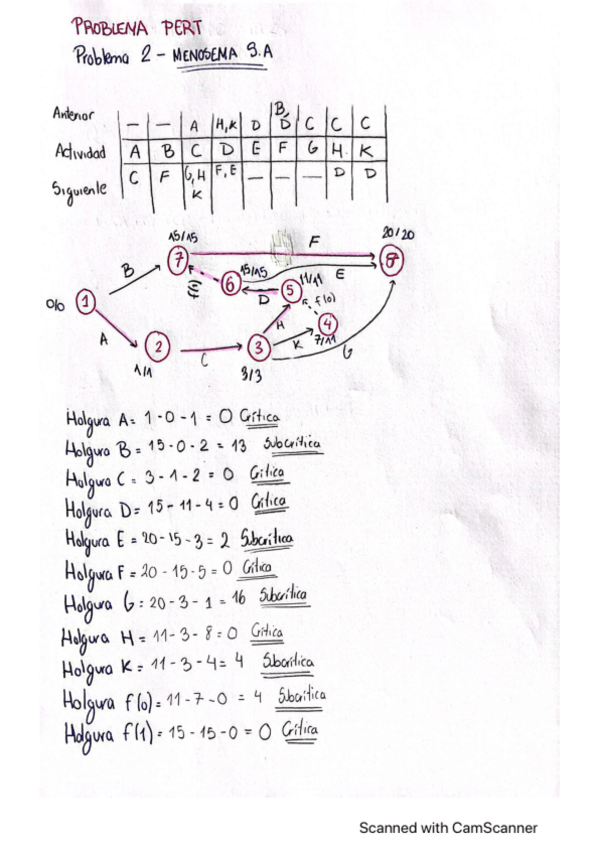 PROBLEMA PERT
Problema 2 - MENOSEMA S.A
Anterior — — A H,K D B,D C C C
Actividad A B C D E F G H K
Siguiente C F G,H K F,E — — — D D
15/15 F 20/20
7 8
B 15/15 E
6 11/11
0/0 1 f(1) D 5 f(0)
H 4
A 2 C 3 K 7/11 G
1/1 3/3
Holgura A = 1-0-1 = 0 Crítica
Holgura B = 15-0-2 = 13 Subcrítica
Holgura C = 3-1-2 = 0 Crítica
Holgura D = 15-11-4 = 0 Crítica
Holgura E = 20-15-3 = 2 Subcrítica
Holgura F = 20-15-5 = 0 Crítica
Holgura G = 20-3-1 = 16 Subcrítica
Holgura H = 11-3-8 = 0 Crítica
Holgura K = 11-3-4 = 4 Subcrítica
Holgura f(0) = 11-7-0 = 4 Subcrítica
Holgura f(1) = 15-15-0 = 0 Crítica
Scanned with CamScanner